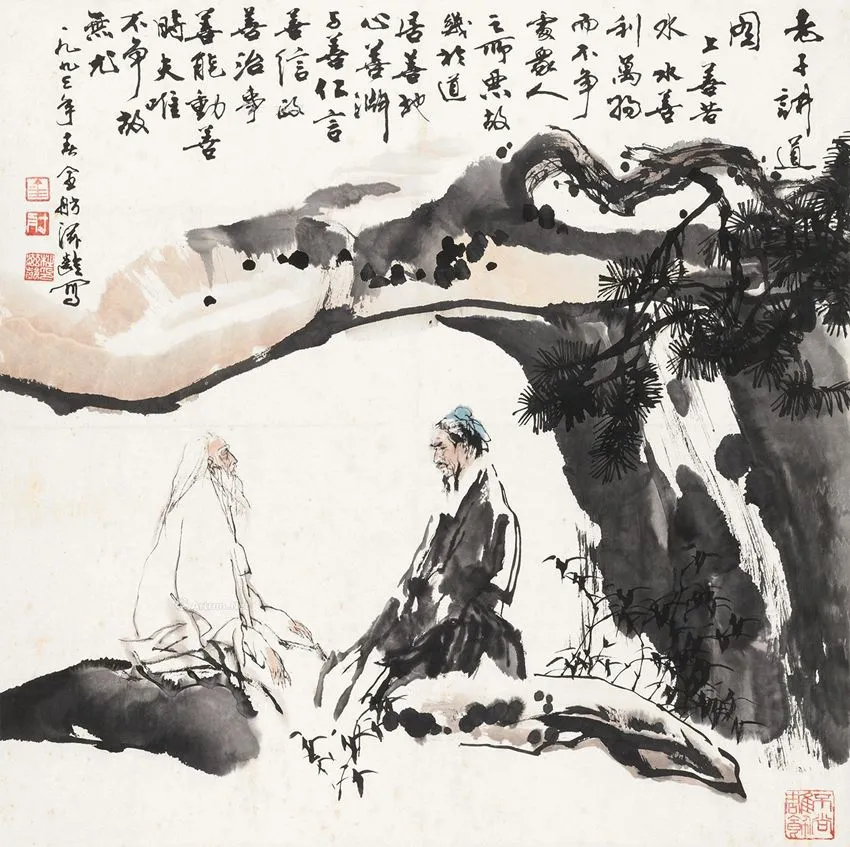 老子講道
图
上善若
水水善
利萬物
而不争
處衆人
之所惡故
幾於道
居善地
心善淵
与善仁言
善信政
善治事
善能動善
時夫唯
不争故
無尤
一九九三年春 寫
Artron.Net